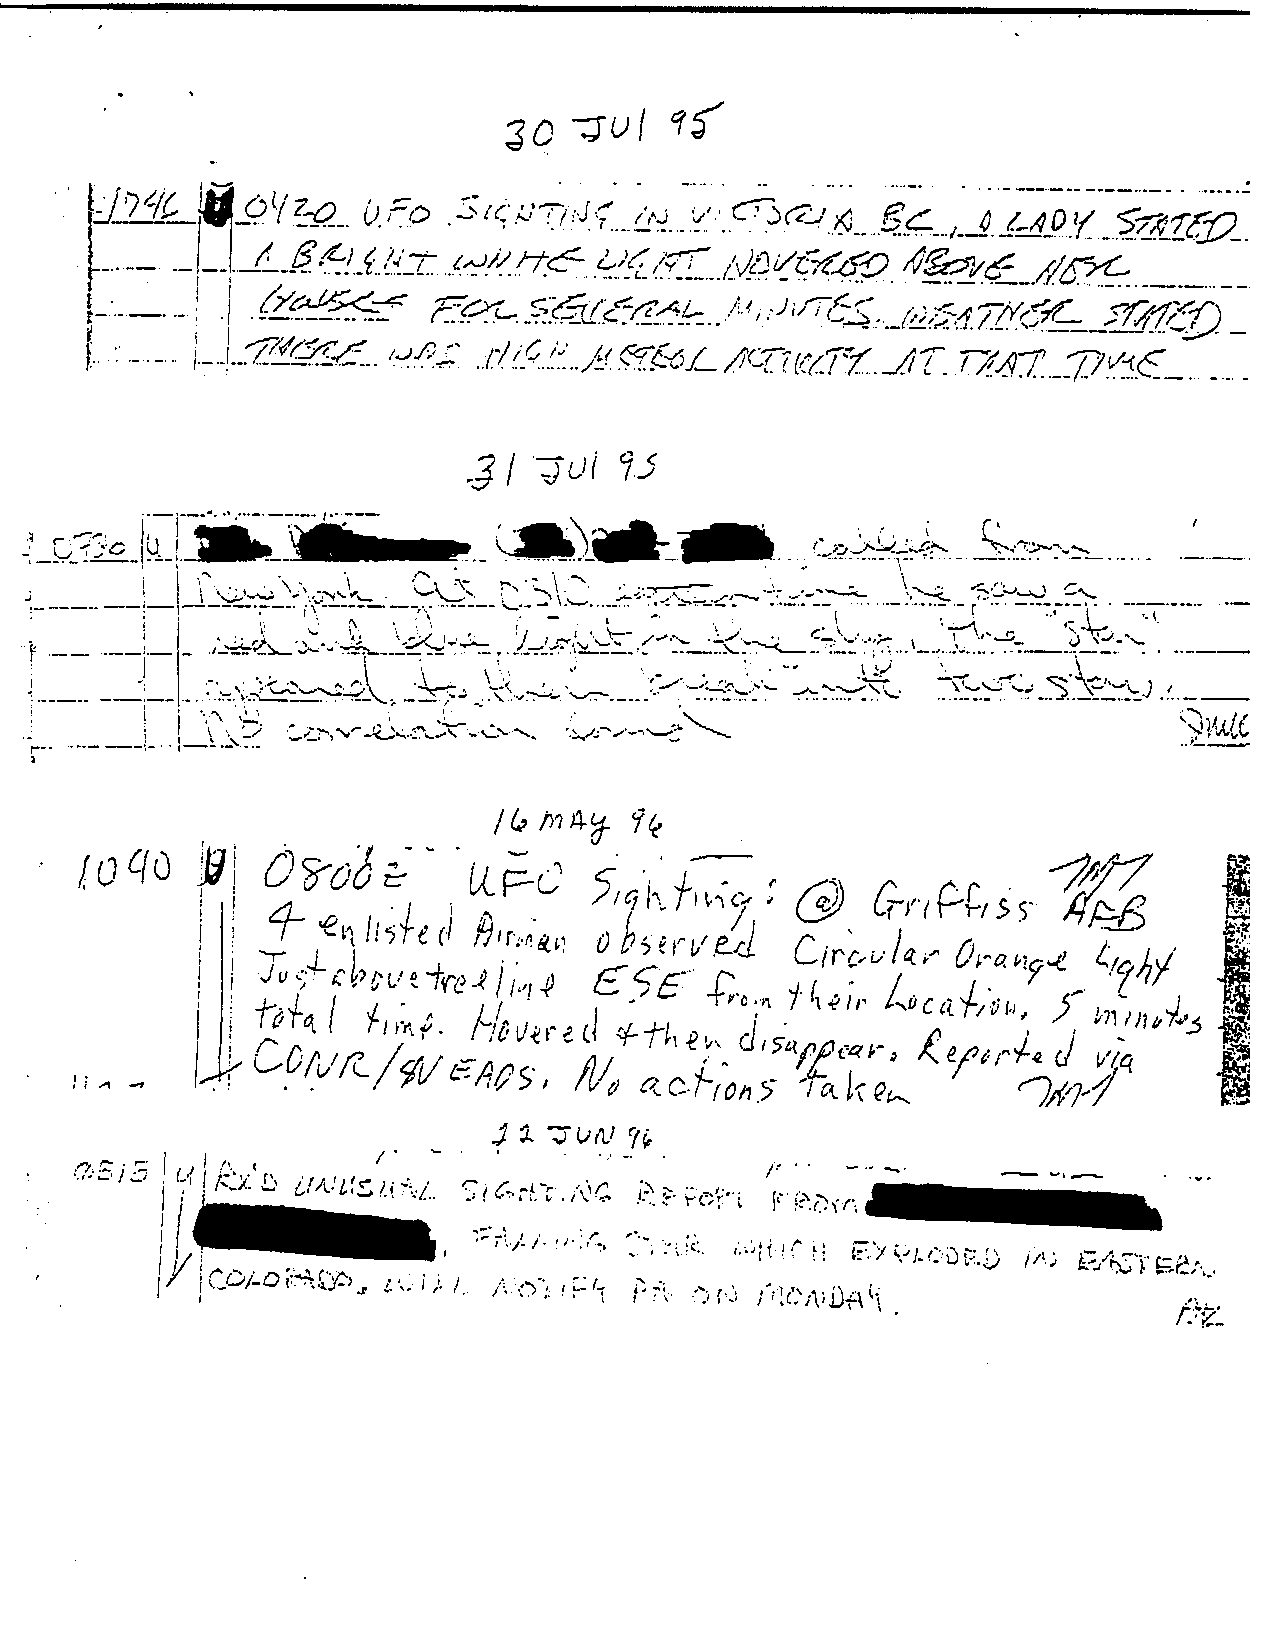 30 JUL 95
1746 U 0420 UFO SIGHTING IN VICTORIA BC, A LADY STATED
A BRIGHT WHITE LIGHT HOVERED ABOVE HER
HOUSE FOR SEVERAL MINUTES. WEATHER STATED
THERE WAS HIGH METEOR ACTIVITY AT THAT TIME
31 JUL 95
0730 U called from
New York. At 0310 eastern time he saw a
red and blue light in the sky, the "star"
appeared to them "break" into two stars.
No correlation found
16 MAY 96
1040 U 0800Z UFO Sighting: @ Griffiss AFB
4 enlisted Airmen observed Circular Orange Light
Just above treeline ESE from their Location. 5 minutes
total time. Hovered & then disappear. Reported via
CONR/NEADS. No actions taken
22 JUN 96
0515 U RX'D UNUSUAL SIGHTING REPORT FROM
, FALLING STAR WHICH EXPLODED IN EASTERN
COLORADO. WILL NOTIFY PA ON MONDAY.